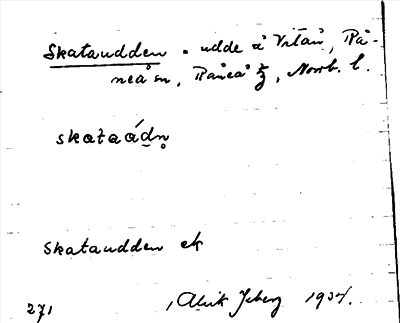 Skataudden - udde å Vitån, Rå-
neå sn, Råneå tg, Norrb. l.
skataádn̥
Skataudden ek
271
1934.